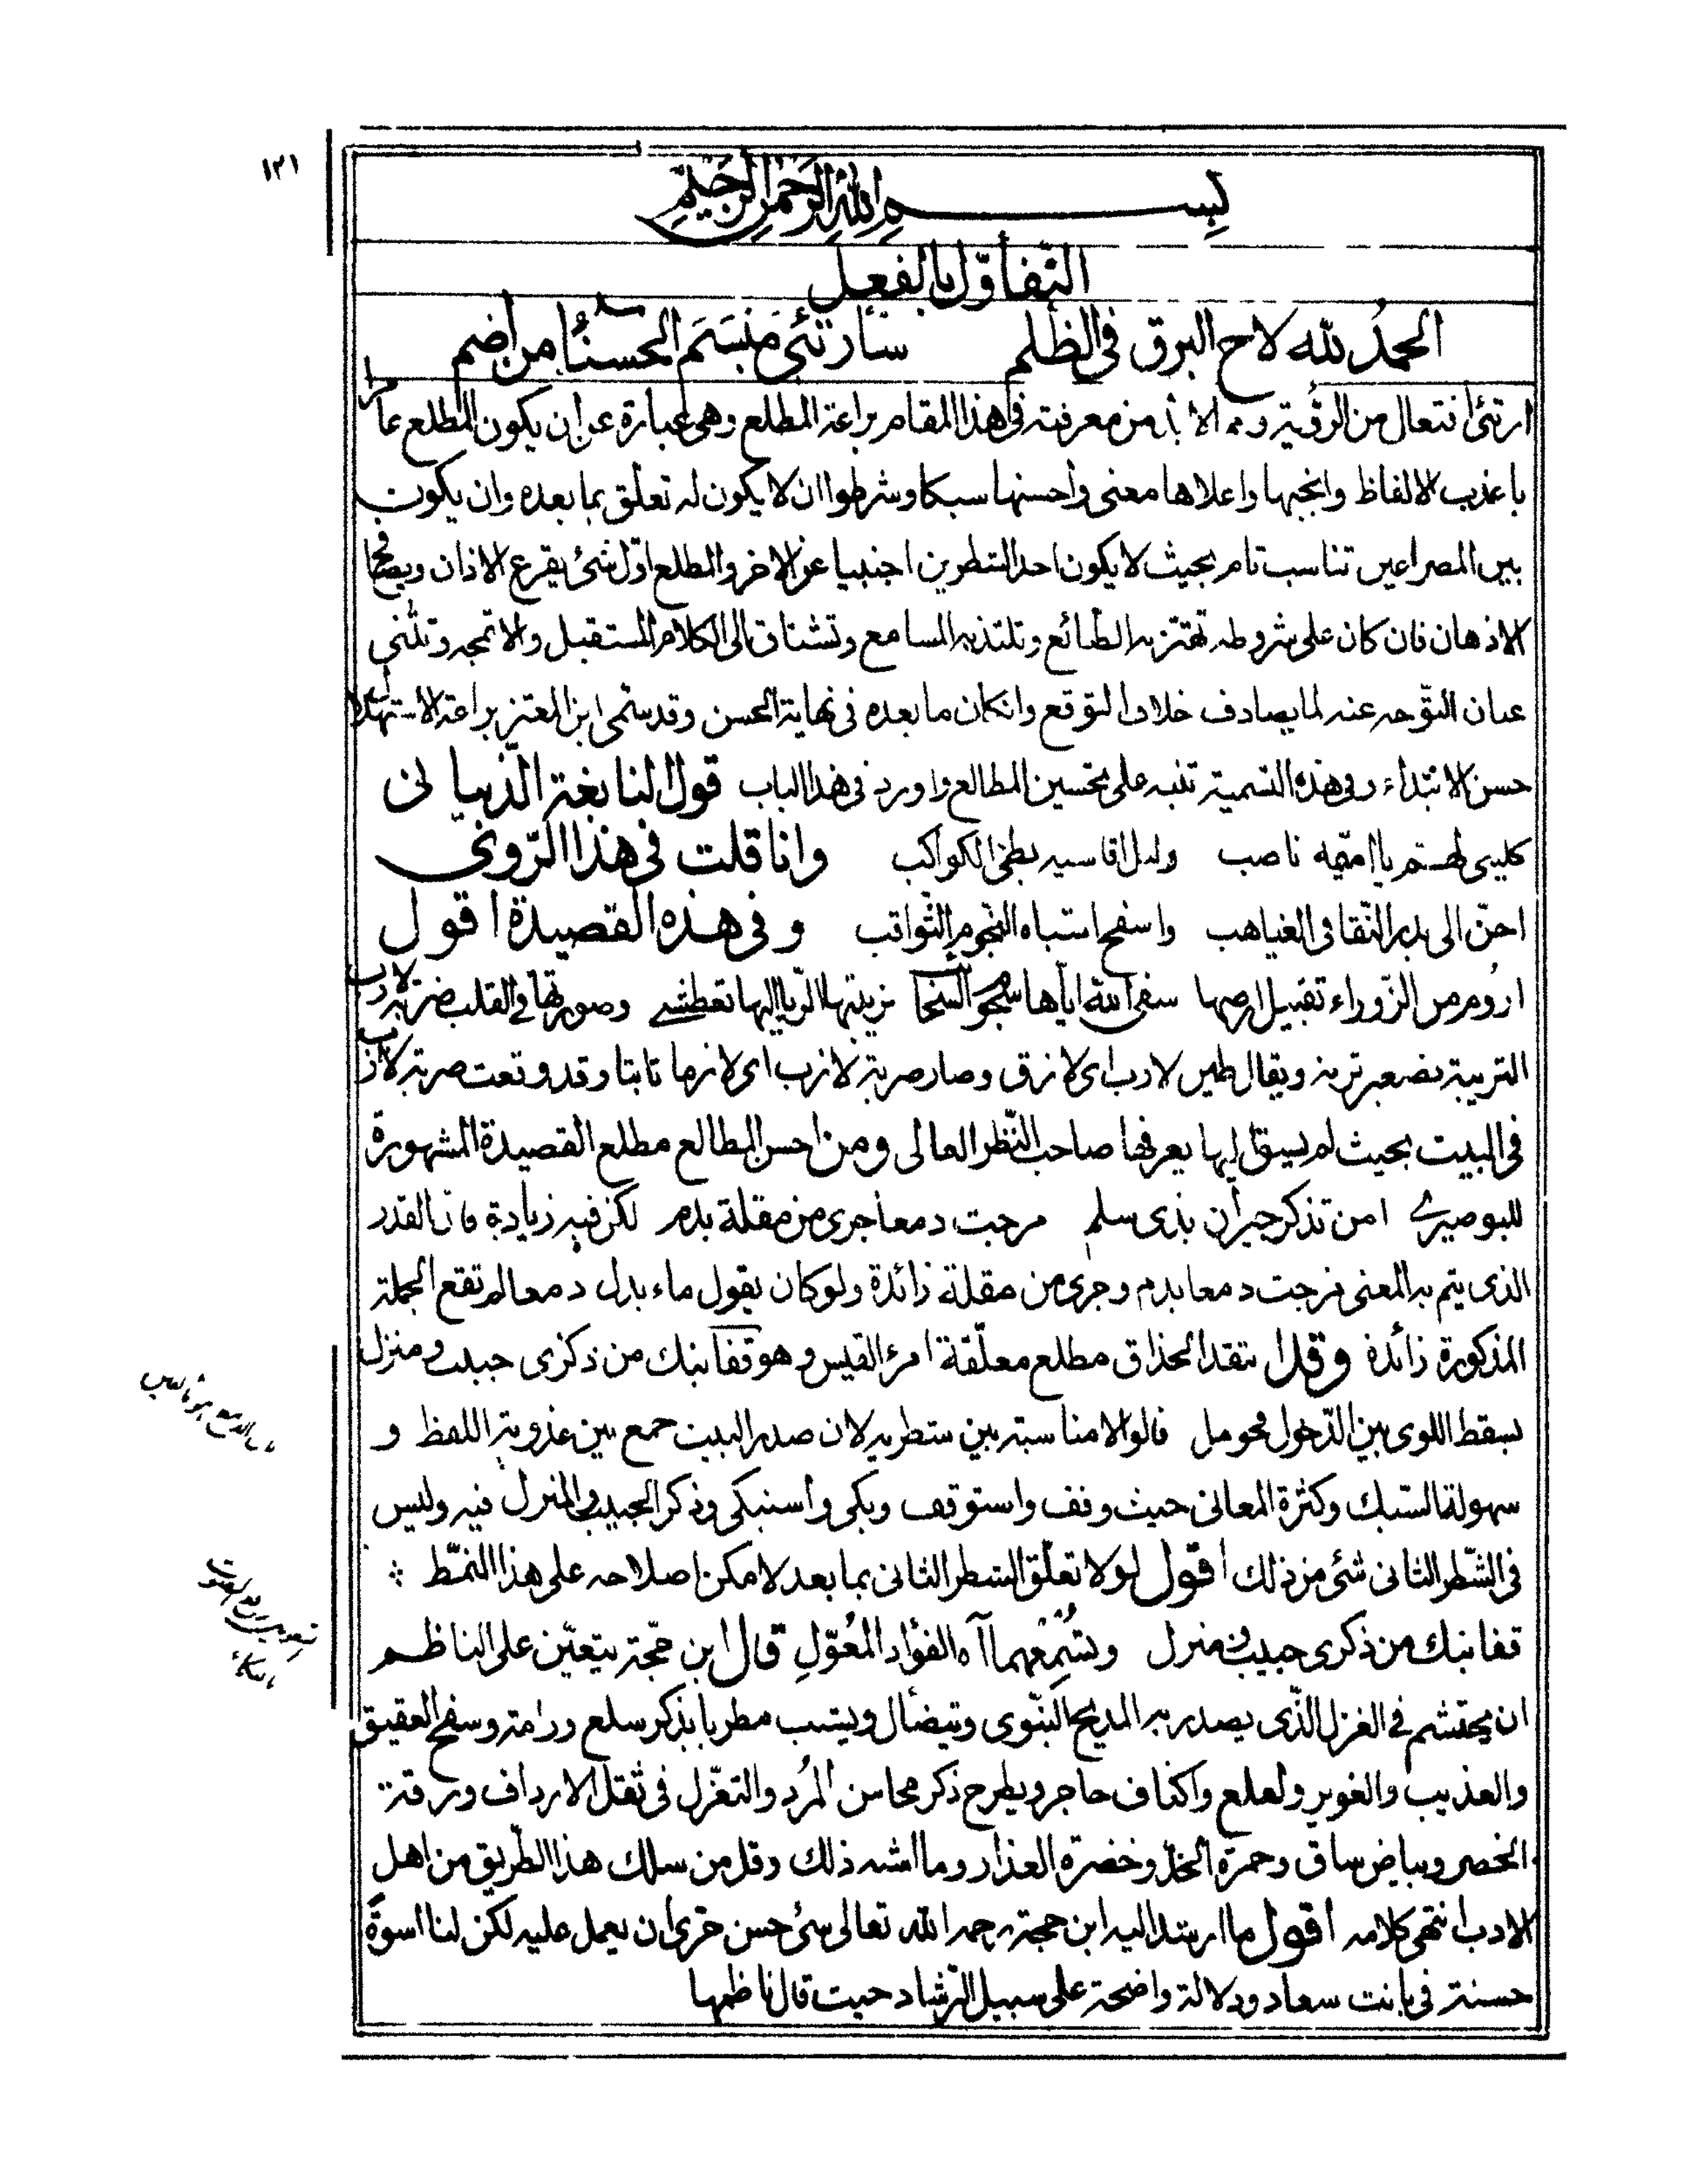 ١٢١
بسم الله الرحمن الرحيم
التّفاؤل بالفعل
الحمدُ لله لاح البرق في الظلم سأرتئي مَبْسَمَ الحسنا من اضم
ارتئى افتعال من الرؤية ومما لا بد من معرفته في هذا المقام براعة المطلع وهي عبارة عن ان يكون المطلع
باعذب الالفاظ واعلاها معنى واحسنها سبكا وشرطوا ان لا يكون له تعلق بما بعده وان يكون
بين المصراعين تناسب تام بحيث لا يكون احد الشطرين اجنبيا عن الاخر والمطلع اوّل شئ يقرع الاذان ويصافح
الاذهان فان كان على شروطه تهتز به الطبائع وتلتذ به المسامع وتشتاق الى الكلام المستقبل والا تمجه وتثنى
عنان التوّجه عنه لما يصادف خلاف التوقع وانكان ما بعده في نهاية الحسن وقد سمّى ابن المعتز براعة الاستهلال
حسن الابتداء وفي هذه التسمية تنبه على تحسين المطالع واورد في هذا الباب قول النابغة الذّبياني
كليني لهم يا اميمة ناصب وليل اقاسيه بطئ الكواكب وانا قلت في هذا الرّوي
احنّ الى بدر النّقا في الغياهب واسفح اشباه النّجوم الثّواقب وفي هذه القصيدة اقول
ارُوم من الزّوراء تقبيل ارضها سقى الله اياها تريبتها الريا اليها تعطشي وصورتها في القلب ضربة لازب
التريبة تصغير تربة ويقال طين لازب اي لازق وصار ضربة لازب اي لازما ثابتا وقد وقعت ضربة لازب
في البيت بحيث لم يسبق اليها يعرفها صاحب النّظر العالي ومن احسن المطالع مطلع القصيدة المشهورة
للبوصيري امن تذكر جيران بذي سلم مزجت دمعا جرى من مقلة بدم لكن فيه زيادة فان القدر
الذي يتم به المعنى مزجت دمعا بدم وجرى من مقلة زائدة ولو كان يقول ماء بدل دمعا لم تقع الجملة
المذكورة زائدة وقد انتقد الحذاق مطلع معلّقة امرء القيس وهو قفا نبك من ذكرى حبيب ومنزل
بسقط اللوى بين الدّخول فحومل قالوا لا مناسبة بين شطريه لان صدر البيت جمع بين عذوبة اللفظ و
سهولة السّبك وكثرة المعاني حيث وقف واستوقف وبكى واستبكى وذكر الحبيب والمنزل فيه وليس
في الشّطر الثاني شئ من ذلك اقول لولا تعلّق الشطر الثاني بما بعد لامكن اصلاحه على هذا النمّط
قفا نبك من ذكرى حبيب ومنزل ونسُمْعهما آه الفؤاد المُعوّلِ قال ابن حجّة يتعيّن على الناظم
ان يحتشم في الغزل الذّي يصدر به المديح النّبوي ويتضأل ويتشبب مطربا بذكر سلع ورامة وسفح العقيق
والعذيب والغوير ولعلع واكناف حاجر ويطرح ذكر محاسن المُرد والتغزّل في ثقل الارداف ورقة
الخصر وبياض ساق وحمرة الخدّ وخضرة العذار وما اشبه ذلك وقل من سلك هذا الطّريق من اهل
الادب انتهى كلامه اقول ما ارشد اليه ابن حجة رحمه الله تعالى شئ حسن حَرىّ ان يعمل عليه لكن لنا اسوَةٌ
حسنة في بانت سعاد ودلالة واضحة على سبيل الرّشاد حيث قال ناظمها